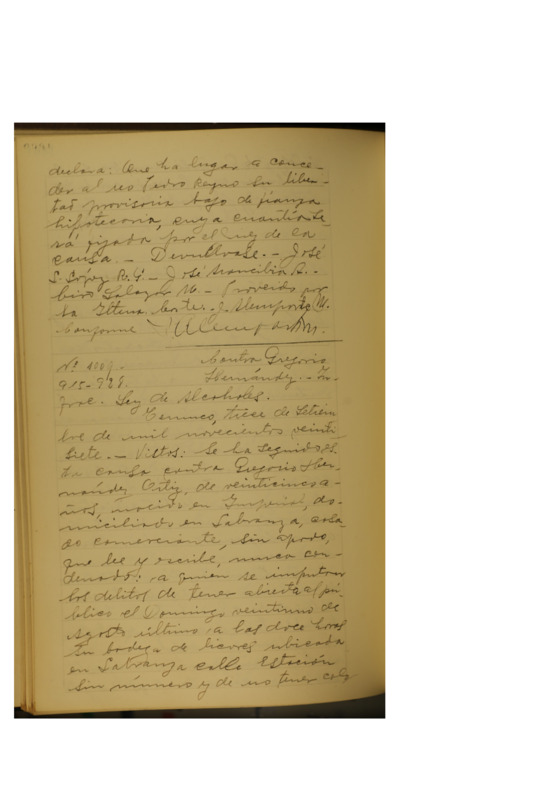 declara: Que ha lugar a conce-
der al reo Pedro Reyno su liber-
tad provisoria bajo de fianza
hipotecaria, cuya cuantía se-
rá fijada por el Juez de la
causa. - Devuélvase. - José
S. López R. G. - José Mancilla A. -
Salazar M. - Proveído por
la Iltma. Corte. - J.
Conforme
Nº 1009. Contra Gregorio
915-928. Hernández. - In-
frac. Ley de Alcoholes.
Temuco, trece de Setiem
bre de mil novecientos veinti
siete. - Vistos: Se ha seguido es
ta causa contra Gregorio Her-
nández Ortiz, de veinticinco a-
ños, nacido en Imperial, do-
miciliado en Labranza, casa-
do comerciante, sin apodo,
que lee y escribe, nunca con-
denado; a quien se imputan
los delitos de tener abierta al pú-
blico el Domingo veintiuno de
Agosto último a las doce horas
su bodega de licores ubicada
en Labranza calle Estación
sin número y de no tener colo